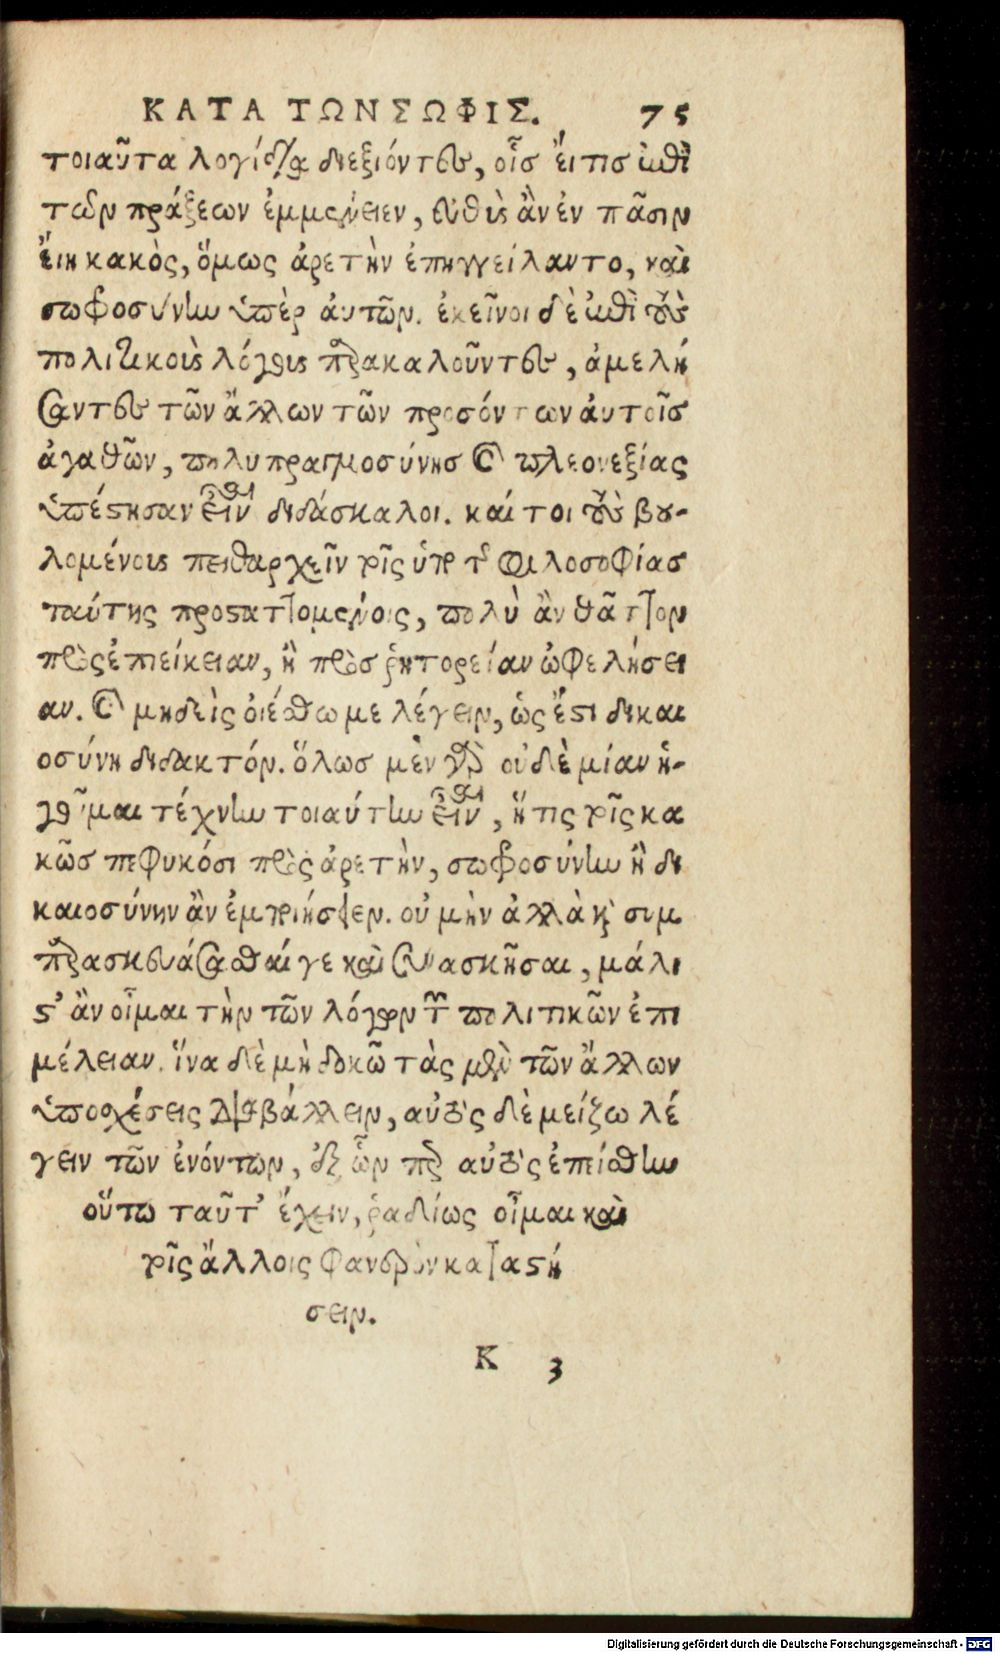 ΚΑΤΑ ΤΩΝ ΣΩΦΙΣ. 75
τοιαῦτα λογίδια διεξιόντες, οἷς εἴ τις ἐπὶ
τῶν πράξεων ἐμμείνειεν, εὐθὺς ἂν ἐν πᾶσιν
εἴη κακὸς, ὅμως ἀρετὴν ἐπηγγείλαντο, καὶ
σωφροσύνην ὑπὲρ αὐτῶν. ἐκεῖνοι δὲ ἐπὶ τοὺς
πολιτικοὺς λόγους παρακαλοῦντες, ἀμελή
σαντες τῶν ἄλλων τῶν προσόντων αὐτοῖς
ἀγαθῶν, πολυπραγμοσύνης καὶ πλεονεξίας
ὑπέστησαν εἶναι διδάσκαλοι. καί τοι τοὺς βου-
λομένους πειθαρχεῖν τοῖς ὑπὸ τῆς φιλοσοφίας
ταύτης προσταττομένοις, πολὺ ἂν θᾶττον
πρὸς ἐπιείκειαν, ἢ πρὸς ῥητορείαν ὠφελήσει
αν. καὶ μηδεὶς οἰέσθω με λέγειν, ὡς ἔστι δικαι
οσύνη διδακτόν. ὅλως μὲν γὰρ οὐδὲ μίαν ἡ-
γοῦμαι τέχνην τοιαύτην εἶναι, ἥτις τοῖς κα
κῶς πεφυκόσι πρὸς ἀρετὴν, σωφροσύνην ἢ δι
καιοσύνην ἂν ἐμποιήσειεν. οὐ μὴν ἀλλὰ καὶ συμ
παρασκευάσασθαί γε καὶ συνασκῆσαι, μάλι
στ’ ἂν οἶμαι τὴν τῶν λόγων τῶν πολιτικῶν ἐπι
μέλειαν. ἵνα δὲ μὴ δοκῶ τὰς μὲν τῶν ἄλλων
ὑποσχέσεις διαβάλλειν, αὐτὸς δὲ μείζω λέ
γειν τῶν ἐνόντων, ἐξ ὧν περ αὐτὸς ἐπείσθην
οὕτω ταῦτ’ ἔχειν, ῥαδίως οἶμαι καὶ
τοῖς ἄλλοις φανερὸν καταστή
σειν.
K 3
Digitalisierung gefördert durch die Deutsche Forschungsgemeinschaft - DFG